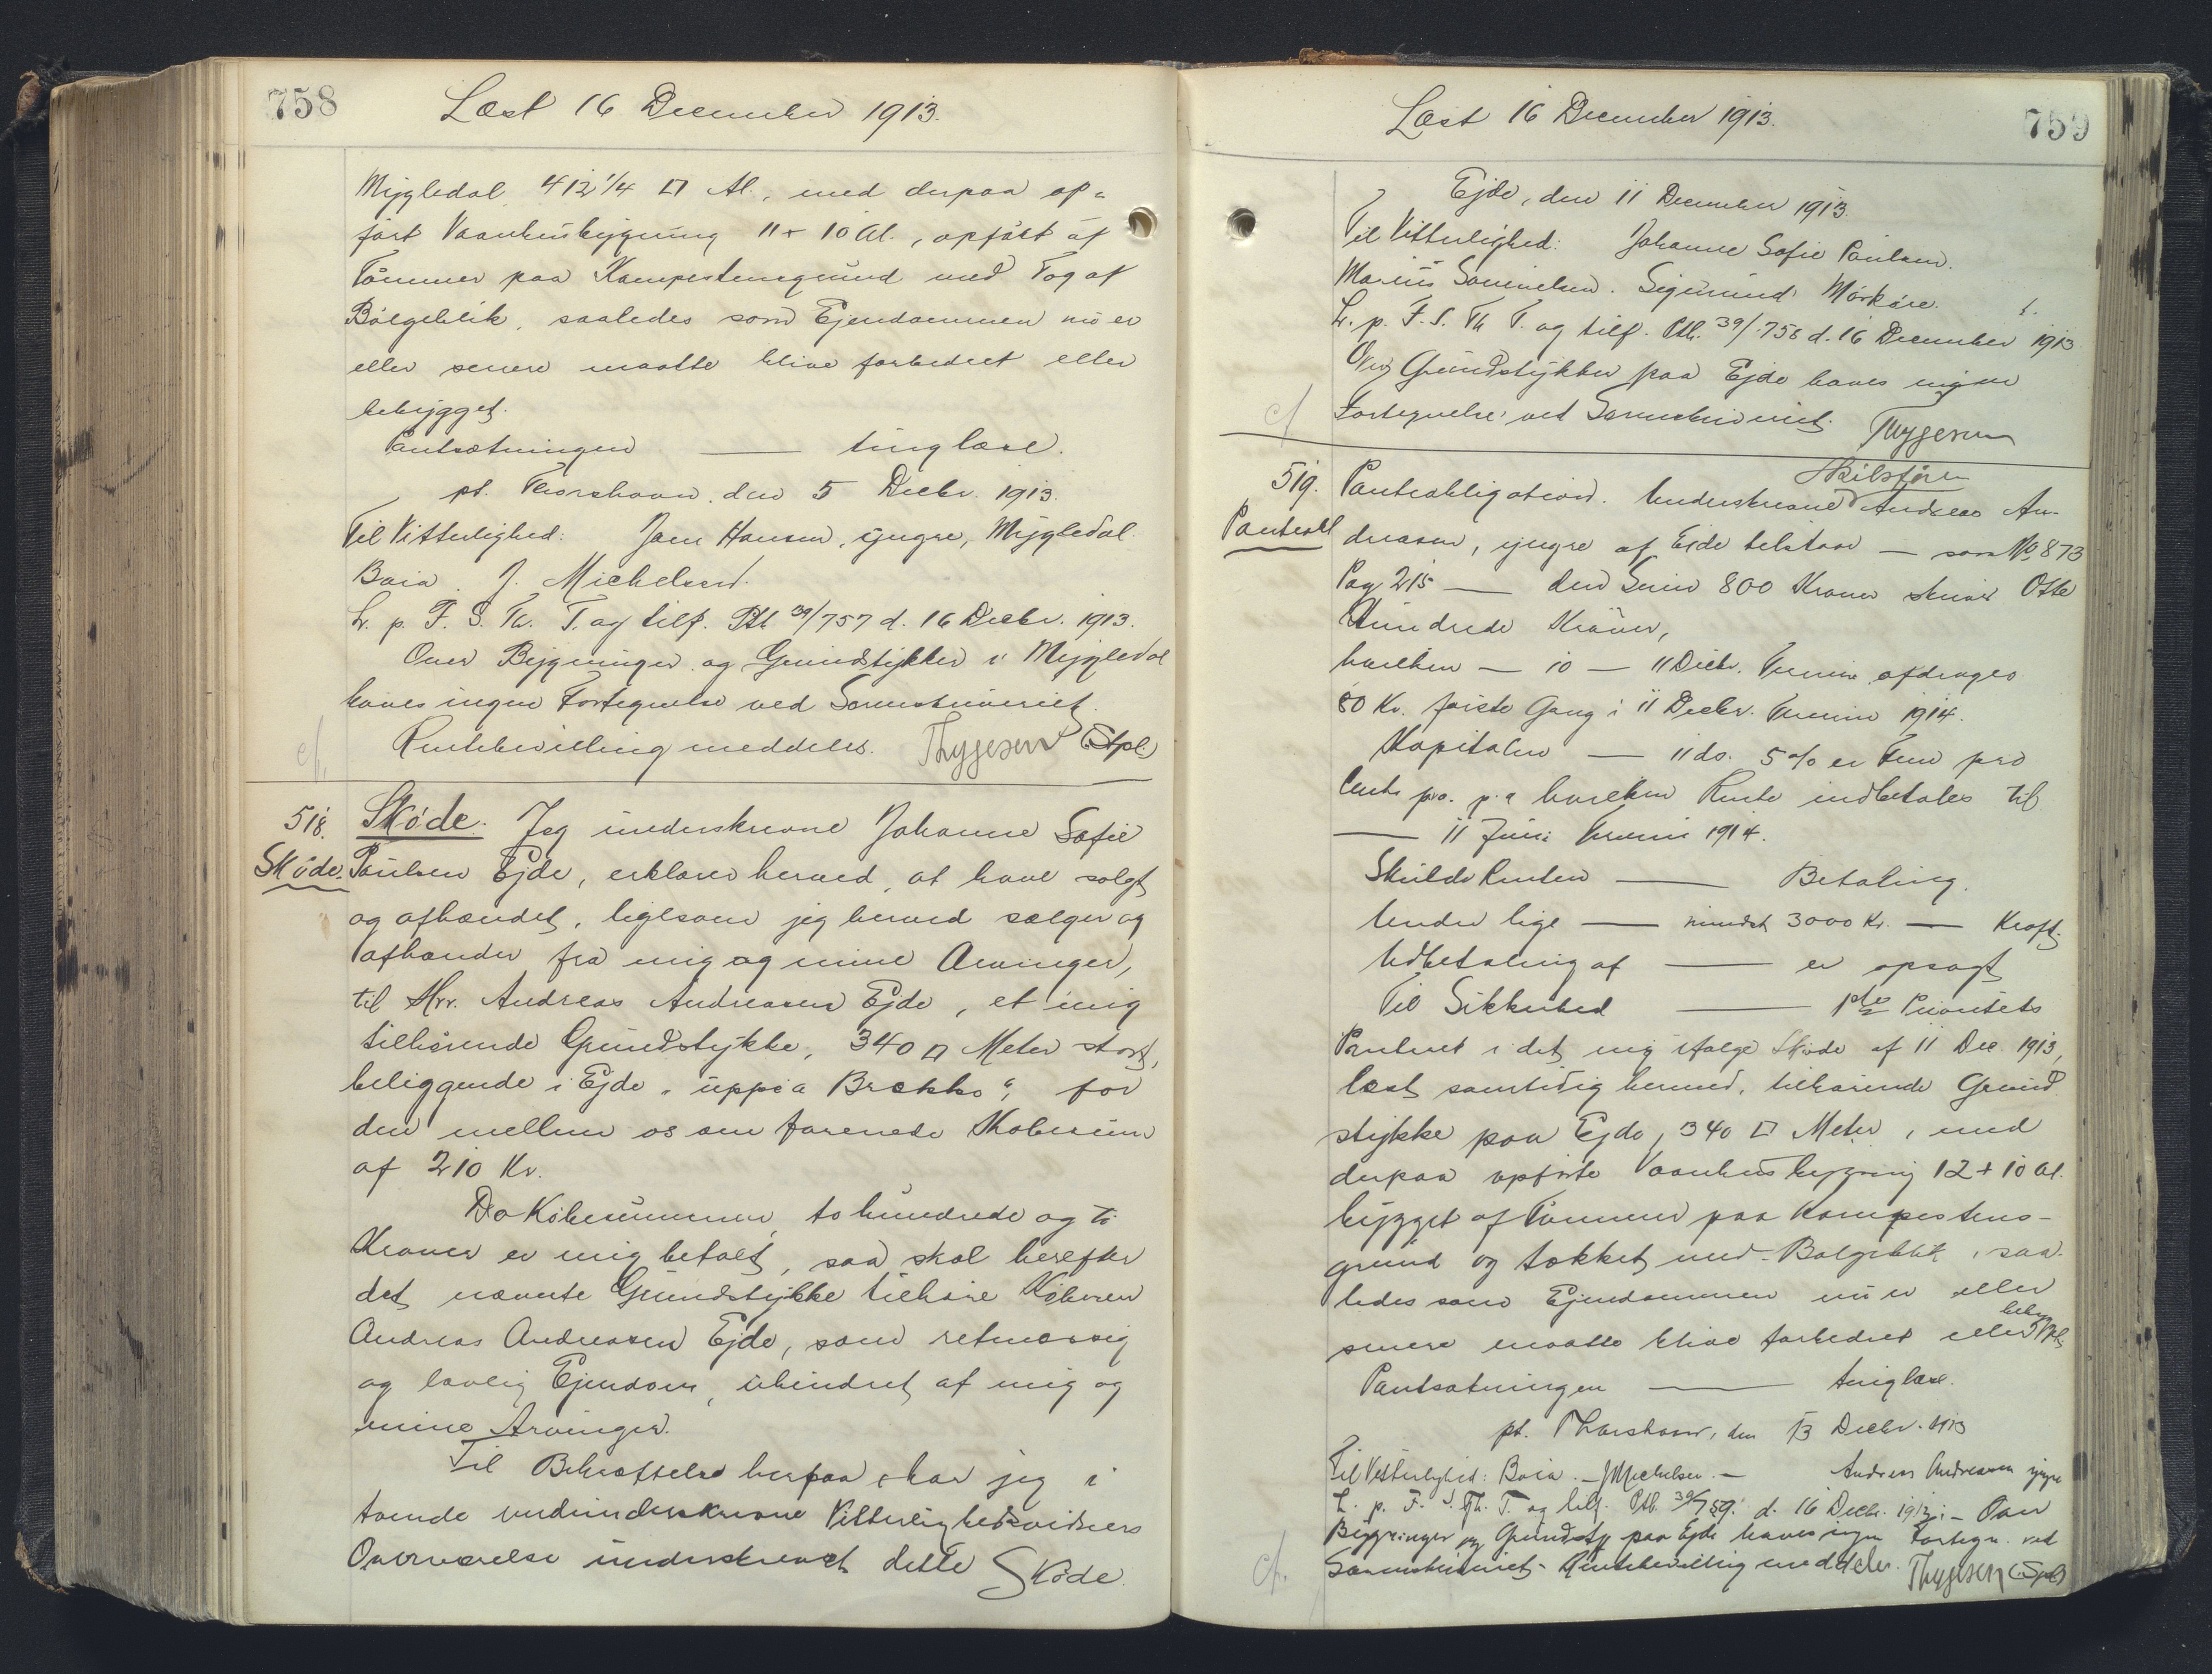 758
Læst 16 December 1913.
Mygledal 412 1/4 □ Al., med derpaa op=
ført Vaanhusbygning 11 + 10 Al., opført af
Tømmer paa Kampestensgrund med Tag af
Bølgeblik, saaledes som Ejendommen nu er
eller senere maatte blive forbedret eller
bebygget.
Pantsætningen — tinglæse.
pt. Thorshavn, den 5 Decbr. 1913.
Til Vitterlighed: Joen Hansen, yngre, Mygledal.
Baia. J. Michelsen.
L. p. F. S. Th. T. og tilf. Ptb 39/757 d. 16 Decbr. 1913.
Over Bygninger og Grundstykker i Mygledal
haves ingen Fortegnelse ved Sorenskriveriet.
Rentebevilling meddeles. Thygesen (Stpl.)
cf.
518. Skøde. Jeg underskrevne Johanne Sofie
Skøde. Poulsen Ejde, erklærer herved, at have solgt
og afhændet, ligesom jeg herved sælger og
afhænder fra mig og mine Arvinger,
til Hrr. Andreas Andreasen Ejde, et mig
tilhørende Grundstykke, 340 □ Meter stort,
beliggende i Ejde „uppi a Brekko“, for
den mellem os om forenede Købesum
af 210 Kr.
Da Købesummen, to hundrede og ti
Kroner er mig betalt, saa skal herefter
det nævnte Grundstykke tilhøre Køberen
Andreas Andreasen Ejde, som retmæssig
og lovlig Ejendom, uhindret af mig og
mine Arvinger.
Til Bekræftelse herpaa har jeg i
tvende medunderskrevne Vitterlighedsvidners
Overværelse underskrevet dette Skøde.
759
Læst 16 December 1913.
Ejde, den 11 December 1913.
Til Vitterlighed: Johanne Sofie Poulsen.
Marius Samuelsen. Sigmund Mørkøre.
L. p. F. S. Th T. og tilf. Ptb. 39/758 d. 16 December 1913
Over Grundstykker paa Ejde haves ingen
Fortegnelse ved Sorenskriveriet. Thygesen
cf
519. Panteobligation. Underskrevne Skibsfører Andreas An-
Panteobl dreasen, yngre af Ejde tilstaar — som No 873
Pag 215 — den Sum 800 Kroner skriver Otte
Hundrede Kroner,
hvilken — io — 11 Decbr. Termin afdrages
80 Kr. første Gang i 11 Decbr. Termin 1914.
Kapitalen — 11 do. 5 % er Fem pro
Cento pro. p.a hvilken Rente indbetales til
— 11 Juni Termin 1914.
Skulde Renten — Betaling.
Under lige — mindst 3000 Kr. — Kraft.
Udbetaling af — er opsagt
Til Sikkerhed — 1ste Prioritets
Panteret i det mig ifølge Skøde af 11 Dec. 1913,
læst samtidig hermed, tilhørende Grund
stykke paa Ejde, 340 □ Meter, med
derpaa opførte Vaanhusbygning 12 + 10 Al.
bygget af Tømmer paa Kampestens-
grund og tækket med Bølgeblik, saa-
ledes som Ejendommen nu er eller
senere maatte blive forbedret eller beby
Pantsætningen — tinglæse.
pt. Thorshavn, den 13 Decbr. 1913
Til Vitterlighed: Baia. — J Michelsen. — Andreas Andreasen yngre
L. p. F. S. Th. T. og tilf. Ptb. 39/759. d. 16 Decbr. 1913: — Over
Bygninger og Grundsty paa Ejde haves ingen Fortegn. ved
Sorenskriveriet. Rentebevilling meddeles. Thygesen (Stpl)
cf.